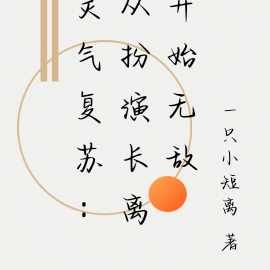 灵气复苏：
从扮演长离
开始无敌
一只小短离 著